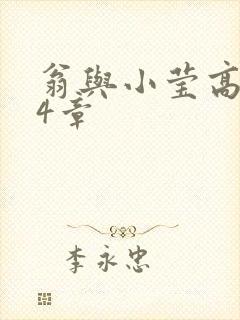 翁與小莹高
4章
李永忠